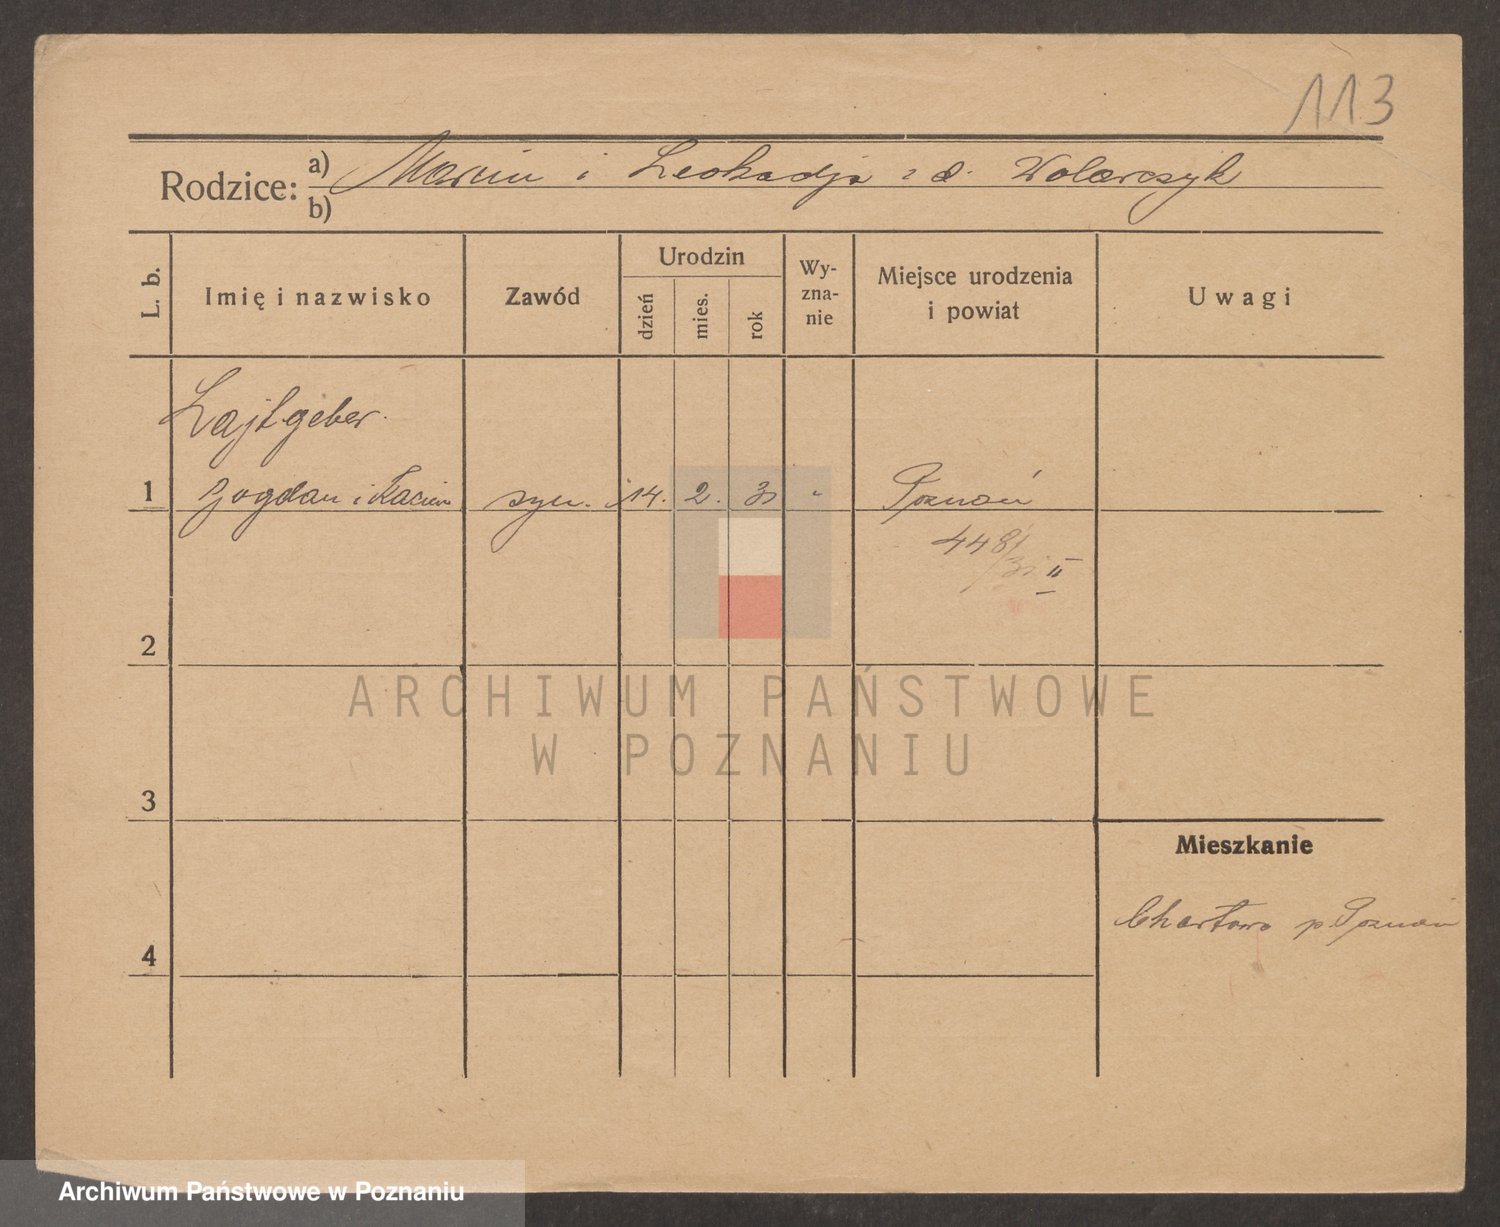 113
Rodzice: a) Marcin i Leokadja z d. Wolarczyk
b)
L. b.
Imię i nazwisko
Zawód
Urodzin
dzień
mies.
rok
Wy-
zna-
nie
Miejsce urodzenia
i powiat
Uwagi
Lajtgeber.
1 Bogdan i syn. 14. 2. 31 Poznań
448/31 II
2
3
4
Mieszkanie
Chartowo p. Poznań
ARCHIWUM PAŃSTWOWE
W POZNANIU
Archiwum Państwowe w Poznaniu